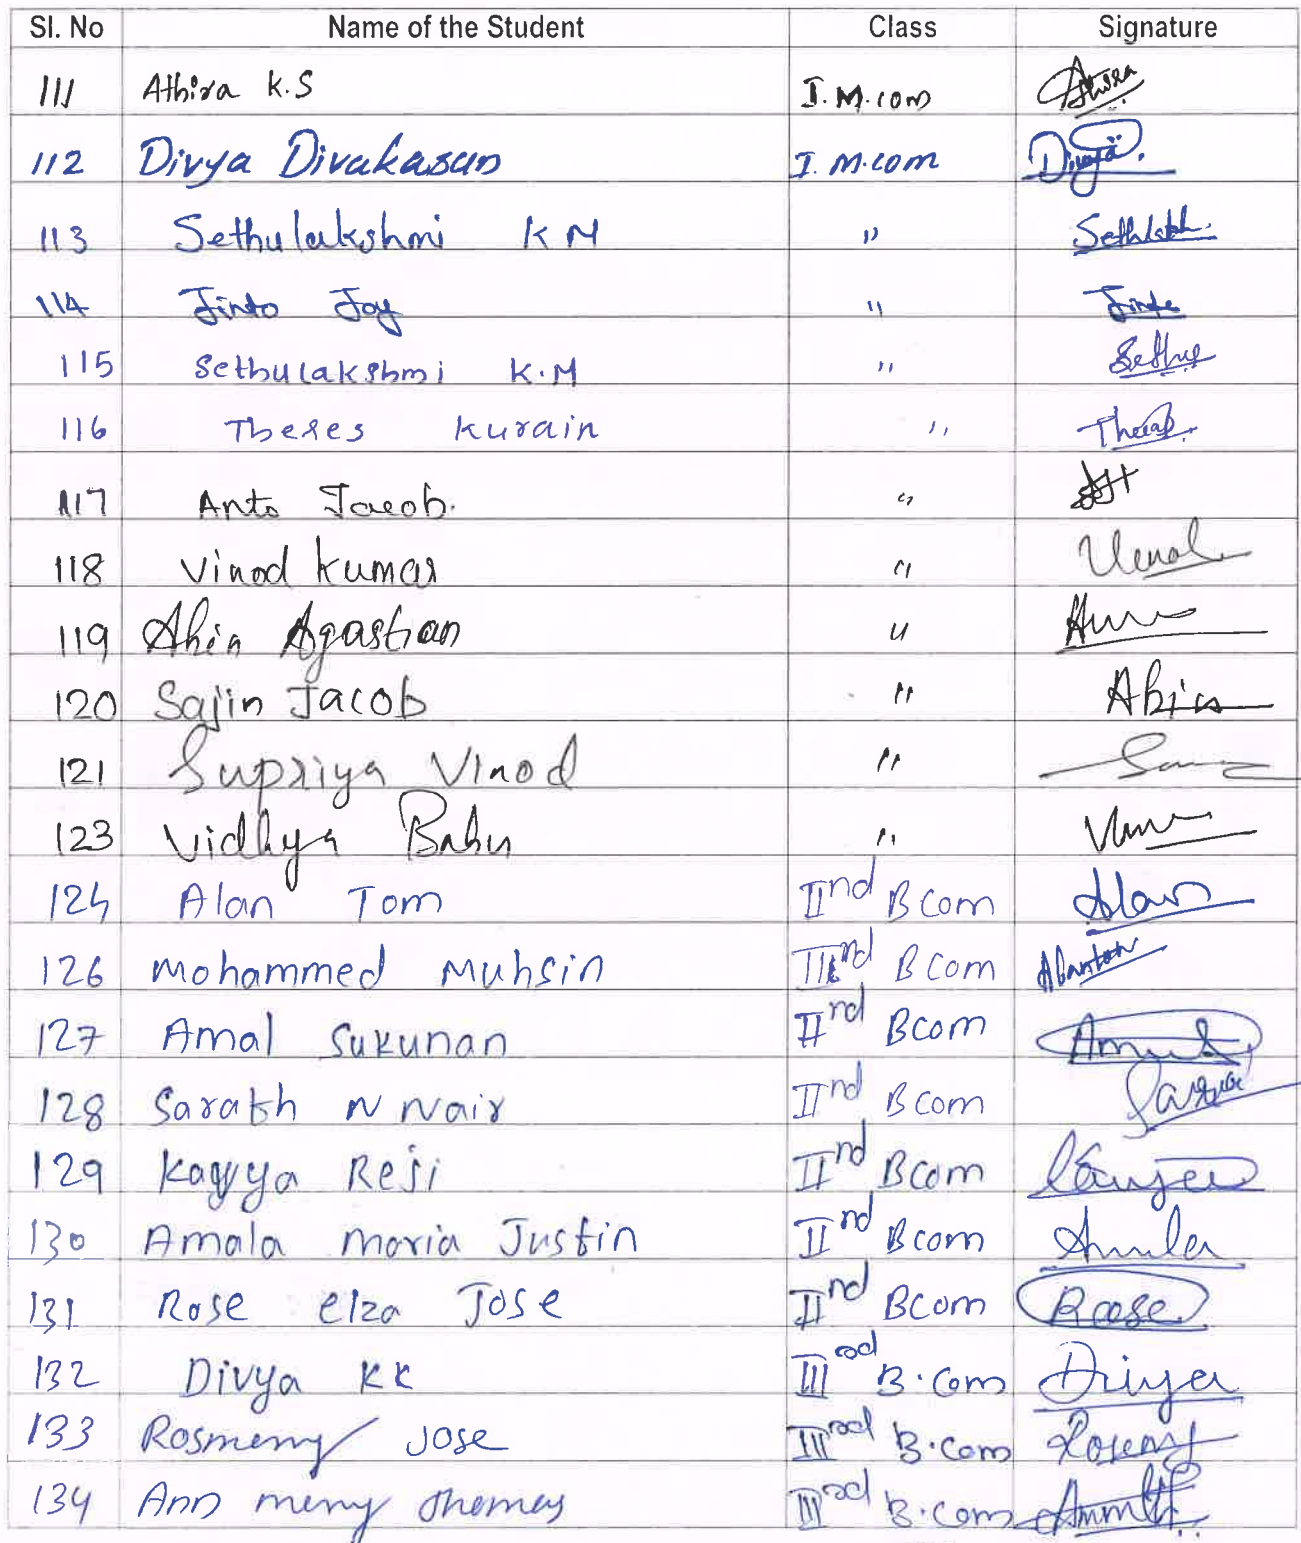 Sl. No Name of the Student Class Signature
111 Athira K.S I. M.com Athira
112 Divya Divakasan I. M.com Divya
113 Sethulakshmi K M "
114 Jinto Joy " Jinto
115 Sethulakshmi K.M " Sethu
116 Theres Kurain "
117 Anto Jacob. "
118 Vinod Kumar "
119 Agastian "
120 Sajin Jacob "
121 Supriya Vinod "
123 Vidhya Babu "
124 Alan Tom IInd BCom Alan
126 Mohammed Muhsin BCom
127 Amal Sukunan IInd BCom
128 Sarath N Nair IInd BCom
129 Reji IInd BCom
130 Amala Maria Justin IInd Bcom Amala
131 Rose elza Jose IInd BCom Roose
132 Divya KK IIIrd B.Com Divya
133 Rosmemy Jose IIIrd B.Com
134 Ann memy Thomas IIIrd B.Com